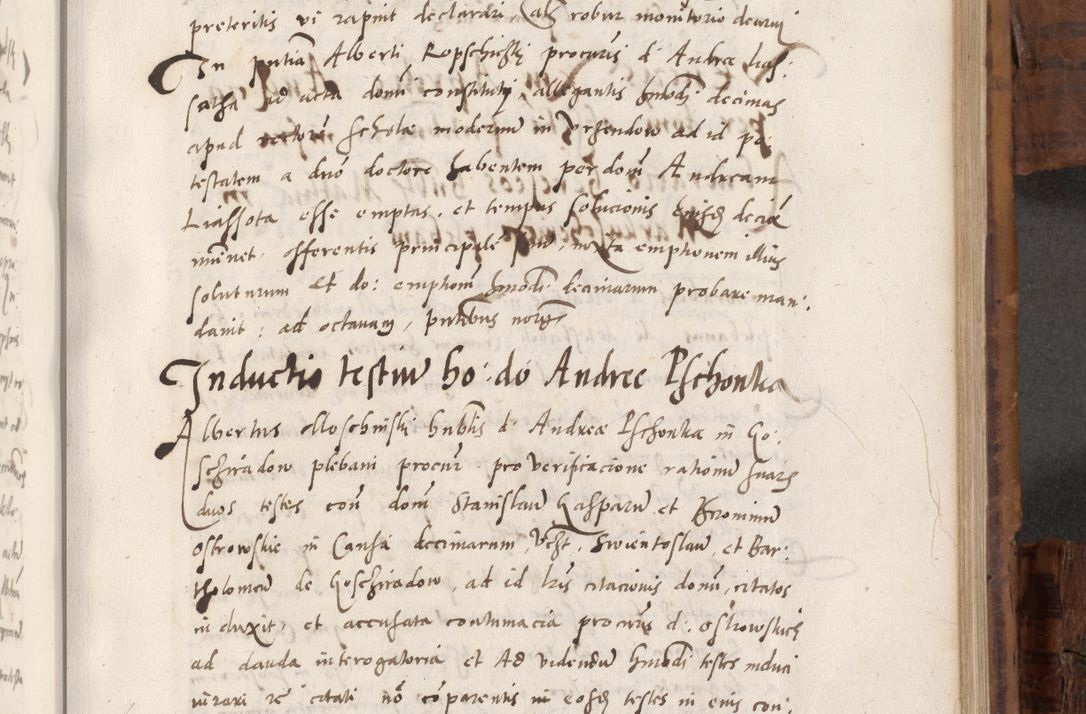 preteritis vi rapuit declarari, als robur monitorio decerni
In pntia Alberti Ropschiczki procuris d Andree Lias:
sotha ad acta domi constituti, allegantis hmodi decimas
apud rectore scholæ modernu in Vrsendow ad id po
testatem a dno doctore habentem per dom Andream
Liassota esse emptas, et tempus solucionis eiusdem decie
offerentis principale suu iuxta emptionem illius
soluturum Et do: emptiom hmodi decimarum probare man:
dauit: ad octauam, pntibus notis
Inductio testiu ho: do Andree Pschonka
Albertus Moschinski hnblis d Andreæ Pschonka in Go:
schiradow plebani procur pro verificacione rationu suars
duos testes con dom Stanislau Gasparu et Hieronimu
Ostrowskie in Causa decimarum, Vcht, Swientoslau, et Bar:
tholomeu de Goschiradow, ad id lris citacionis domi, citatos
in duxit, et accusata contumacia procuris d: Ostrowskich
ad danda interogatoria et Ad videndu hmodi testes induci
iurari re citati no comparentis in eosdem testes in eius con: